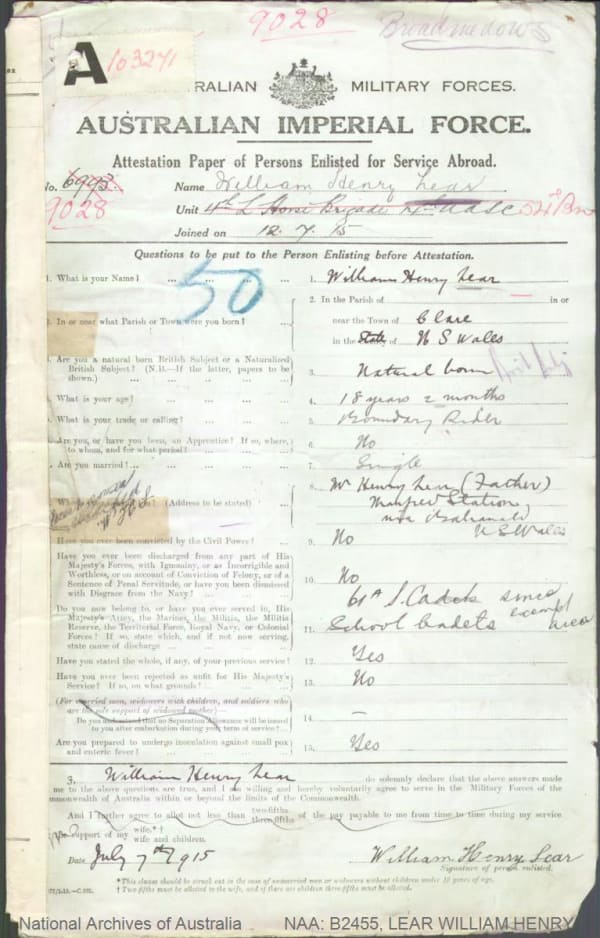 9028
Broadmedows
A 103271
AUSTRALIAN MILITARY FORCES.
AUSTRALIAN IMPERIAL FORCE.
Attestation Paper of Persons Enlisted for Service Abroad.
No. 6993. Name William Henry Lear
9028 Unit 4th L Horse Brigade 54th Bn
Joined on 12. 7. 15
Questions to be put to the Person Enlisting before Attestation.
50
1. What is your Name? ... ... ... ... 1. William Henry Lear
2. In the Parish of in or
2. In or near what Parish or Town were you born? ... near the Town of Clare
in the State of N S Wales
3. Are you a natural born British Subject or a Naturalized
British Subject? (N.B.—If the latter, papers to be
shown.) ... ... ... ... 3. Natural born
4. What is your age? ... ... ... ... 4. 18 years 2 months
5. What is your trade or calling? ... ... ... 5. Boundary Rider
Are you, or have you been, an Apprentice? If so, where,
to whom, and for what period? ... ... ... 6. No
Are you married? ... ... ... ... 7. Single
8. Mr Henry Lear (Father)
(Address to be stated) ... Manfred Station
via Balranald
N S Wales
Have you ever been convicted by the Civil Power? ... 9. No
Have you ever been discharged from any part of His
Majesty's Forces, with Ignominy, or as Incorrigible and
Worthless, or on account of Conviction of Felony, or of a
Sentence of Penal Servitude, or have you been dismissed
with Disgrace from the Navy? ... ... 10. No
Do you now belong to, or have you ever served in, His
Majesty's Army, the Marines, the Militia, the Militia
Reserve, the Territorial Force, Royal Navy, or Colonial
Forces? If so, state which, and if not now serving,
state cause of discharge ... ... ... 11. 61A S. Cadets since
School Cadets exempt area
Have you stated the whole, if any, of your previous service? 12. Yes
Have you ever been rejected as unfit for His Majesty's
Service? If so, on what grounds? ... ... 13. No
(For married men, widowers with children, and soldiers who
are the sole support of widowed mother)—
Do you understand that no Separation Allowance will be issued
to you after embarkation during your term of service? ... 14. —
Are you prepared to undergo inoculation against small pox
and enteric fever? ... ... ... 15. Yes
3. William Henry Lear do solemnly declare that the above answers made
me to the above questions are true, and I am willing and hereby voluntarily agree to serve in the Military Forces of the
mmonwealth of Australia within or beyond the limits of the Commonwealth.
And I further agree to allot not less than two-fifths three-fifths of the pay payable to me from time to time during my service
support of my wife.*†
wife and children.
Date July 7th 1915 William Henry Lear
Signature of person enlisted.
*This clause should be struck out in the case of unmarried men or widowers without children under 18 years of age.
†Two-fifths must be allotted to the wife, and if there are children three-fifths must be allotted.
National Archives of Australia NAA: B2455, LEAR WILLIAM HENRY